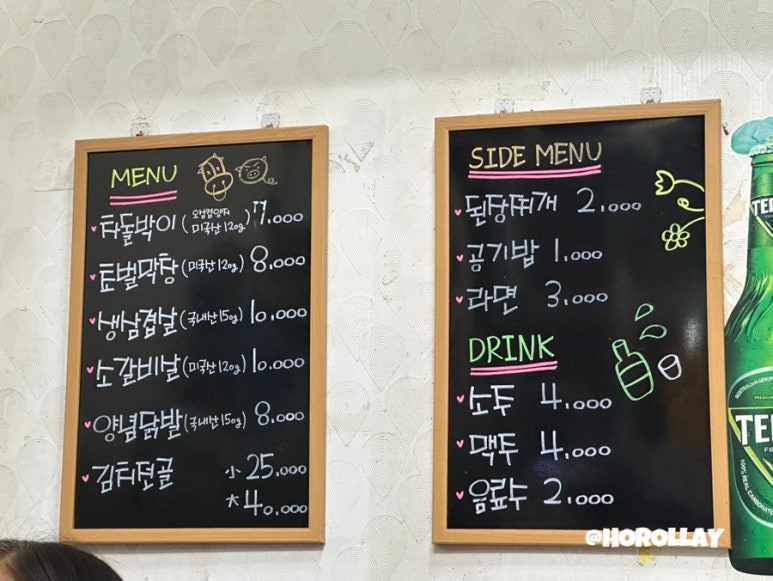 MENU
차돌박이(우삼겹양지 미국산120g) 7,000
토벌막창(미국산120g) 8,000
생삼겹살(국내산150g) 10,000
소갈비살(미국산120g) 10,000
양념닭발(국내산150g) 8,000
김치전골 小 25,000
大 40,000
SIDE MENU
된장찌개 2,000
공기밥 1,000
라면 3,000
DRINK
소주 4,000
맥주 4,000
음료수 2,000
@HOROLLAY